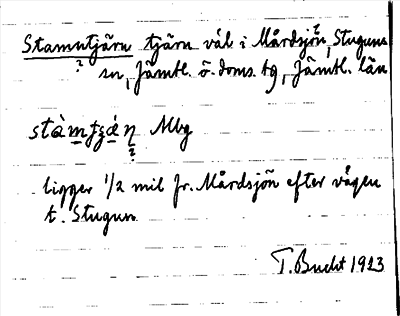 Stamntjärn tjärn väl i Mårdsjön, Stuguns
? sn, Jämtl. ö. doms. tg, Jämtl. län
Mbg
?
ligger 1/2 mil fr. Mårdsjön efter vägen
t. Stugun
T. Bucht 1923